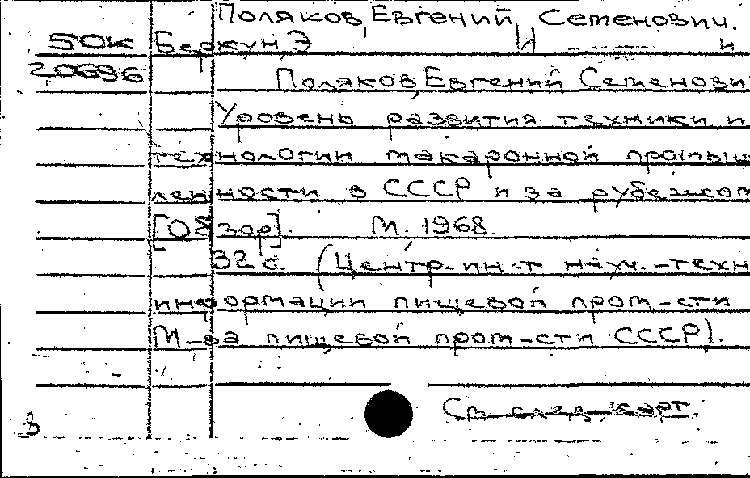 Поляков, Евгений Семенович.
50к Беркун, Э И и
20696 Поляков, Евгений Семенови
Уровень развития техники и
технологии макаронной промыш
ленности в СССР и за рубежом
[Обзор]. М. 1968.
32 с. (Центр. ин-т науч.-техн
информации пищевой пром-сти
М-ва пищевой пром-сти СССР).
См. след. карт.
3